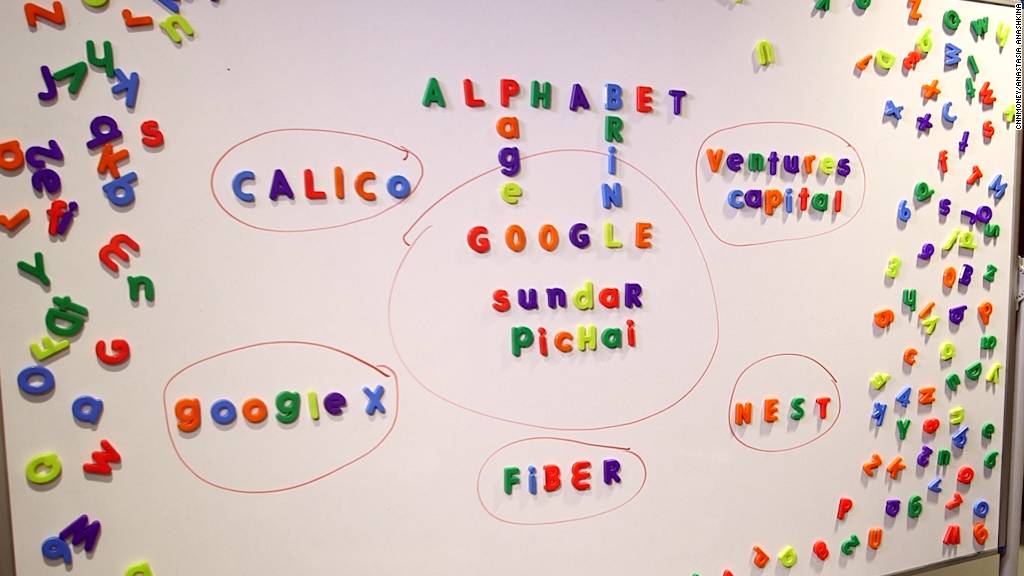 ALPHABET
Page
BRiNL
CALICo
Ventures
capital
GOOGLE
sundaR
PicHai
google X
NEST
FiBER
CNNMONEY/ANASTASIA ANASHKINA